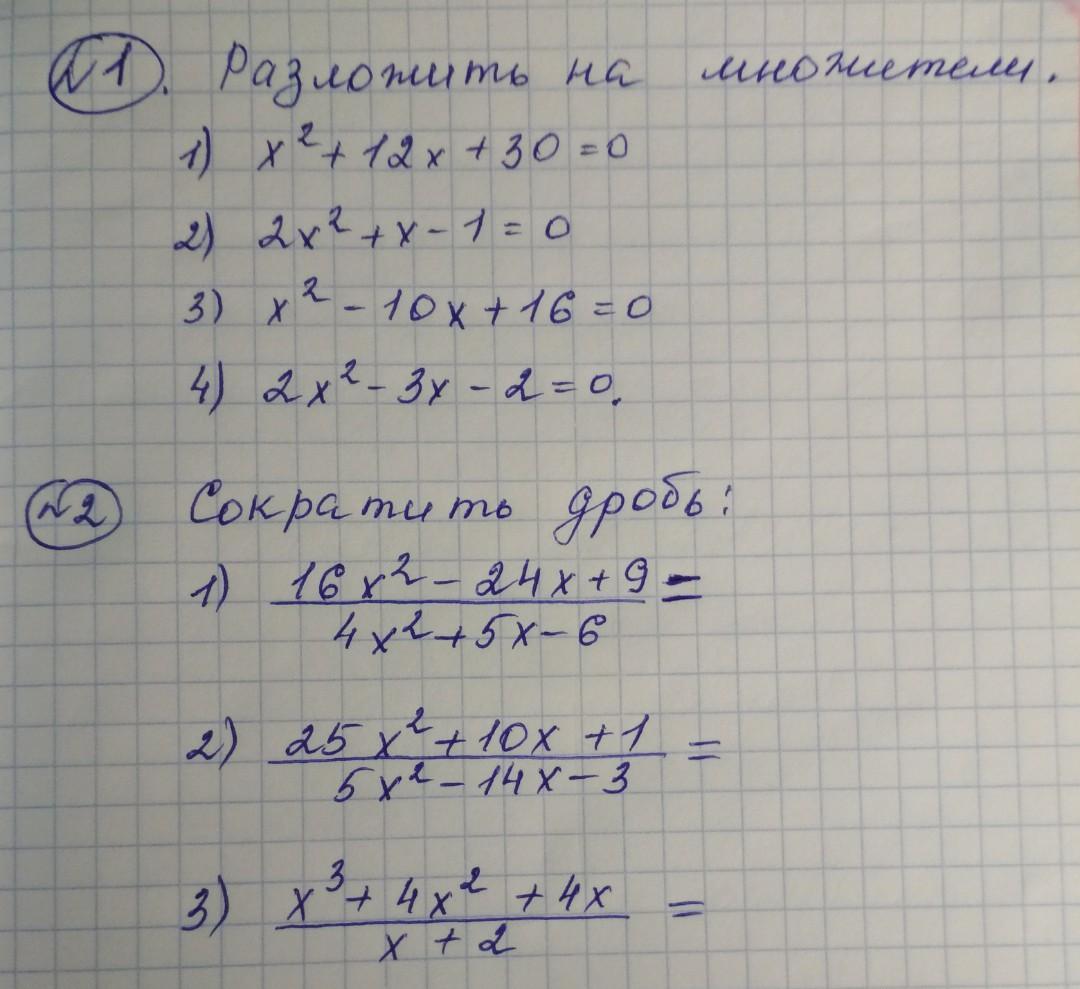 №1. Разложить на множители.
1) x² + 12x + 30 = 0
2) 2x² + x - 1 = 0
3) x² - 10x + 16 = 0
4) 2x² - 3x - 2 = 0.
№2 Сократить дробь:
1) 16x² - 24x + 9 =
4x² + 5x - 6
2) 25x² + 10x + 1 =
5x² - 14x - 3
3) x³ + 4x² + 4x =
x + 2